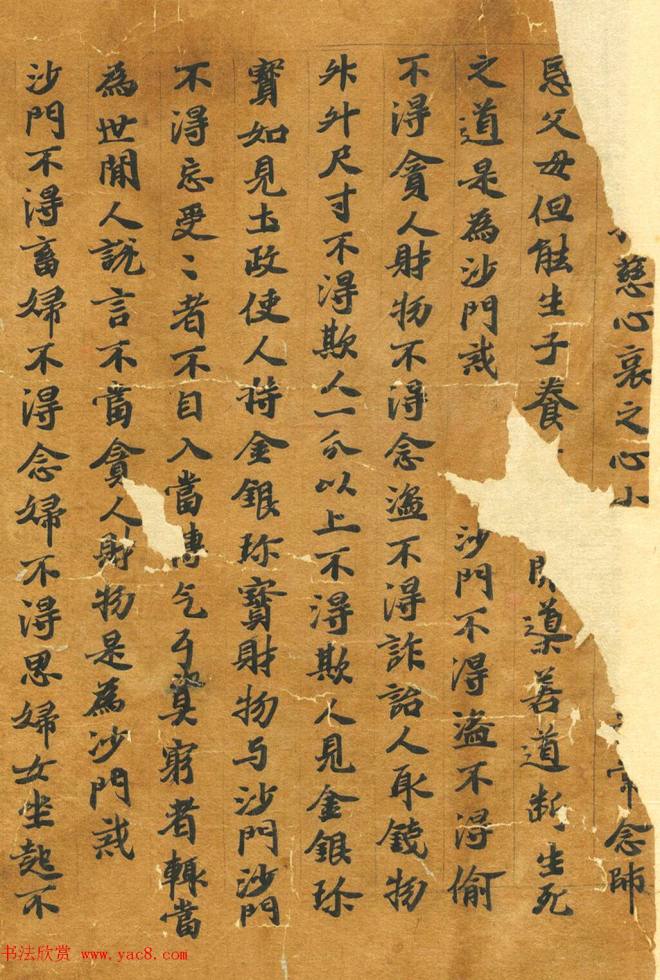 慈心哀之心 常念師
恩父母但能生子養 導善道斷生死
之道是為沙門戒 沙門不得盜不得偷
不得貪人財物不得念盜不得詐詒人取錢物
尺寸不得欺人一分以上不得欺人見金銀珎
寶如見土政使人持金銀珎寶財物与沙門沙門
不得忘受〻者不自入當 乞丐 窮者轉當
為世間人說言不當貪人財物是為沙門戒
沙門不得畜婦不得念婦不得思婦女坐起不
书法欣赏 www.yac8.com